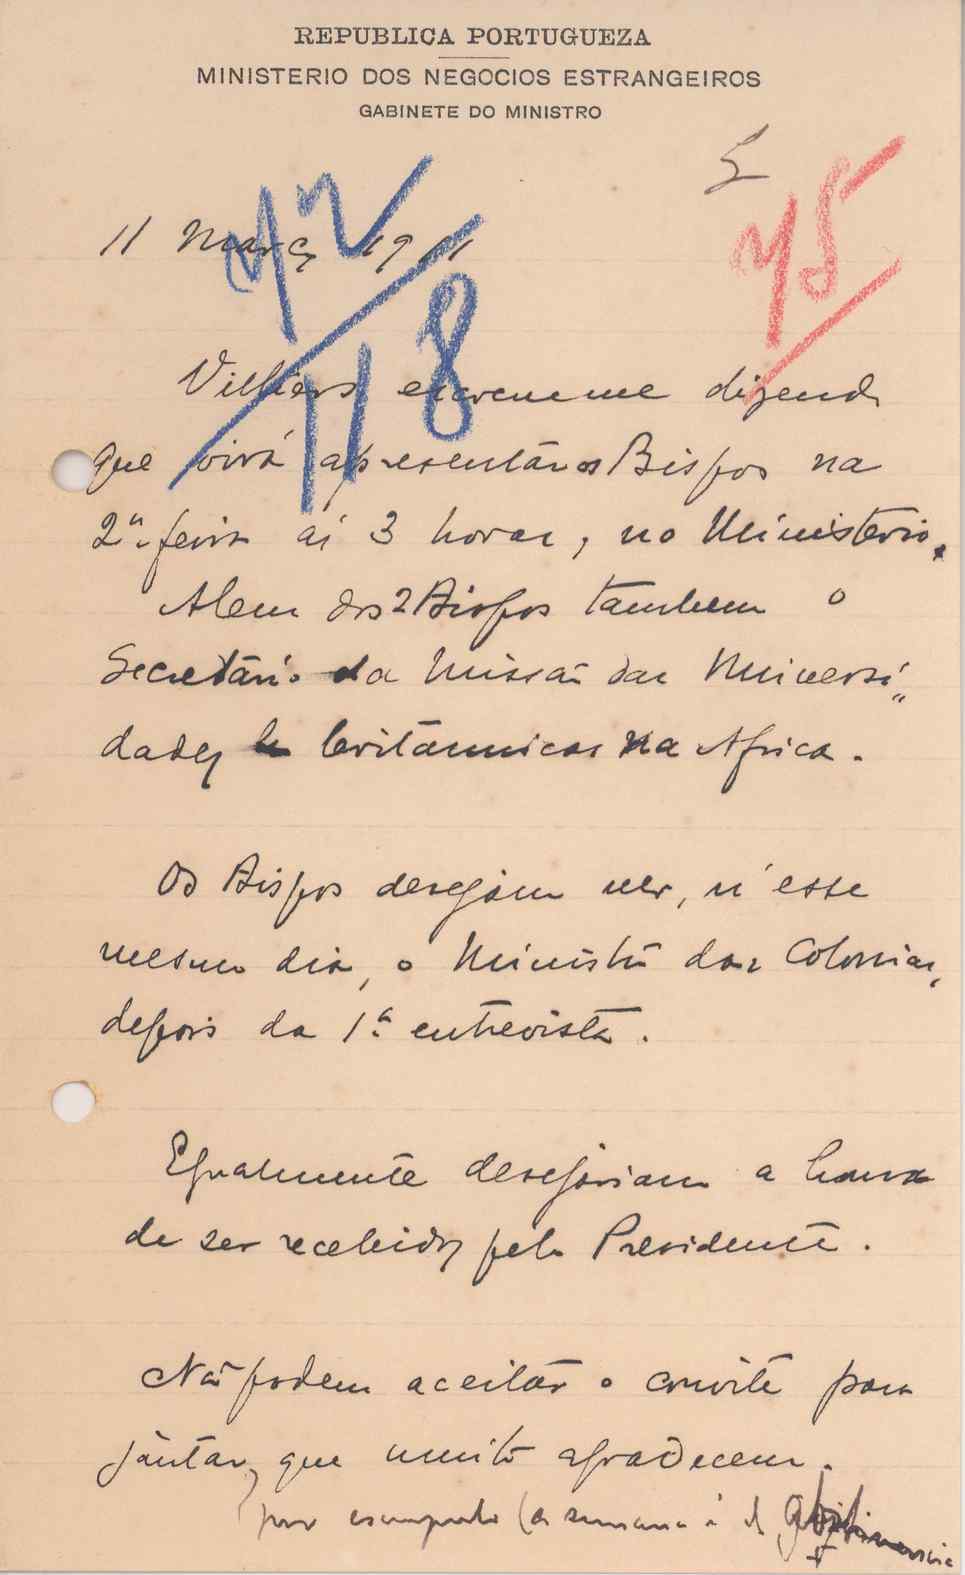 REPUBLICA PORTUGUEZA
MINISTERIO DOS NEGOCIOS ESTRANGEIROS
GABINETE DO MINISTRO
75
72
118
11 Março 1911
Villiers escreve-me dizendo
que virá apresentar os Bispos na
2ª feira ás 3 horas, no Ministerio.
Alem dos 2 Bispos tambem o
Secretário da Missão das Universi"
dades britannicas na Africa.
Os Bispos desejam ver, n'esse
mesmo dia, o Ministro das Colonias,
depois da 1ª entrevista.
Egualmente desejariam a honra
de ser recebidos pelo Presidente.
Não podem aceitar o convite para
jantar, que muito agradecem.
por escrupulo (a semana é de